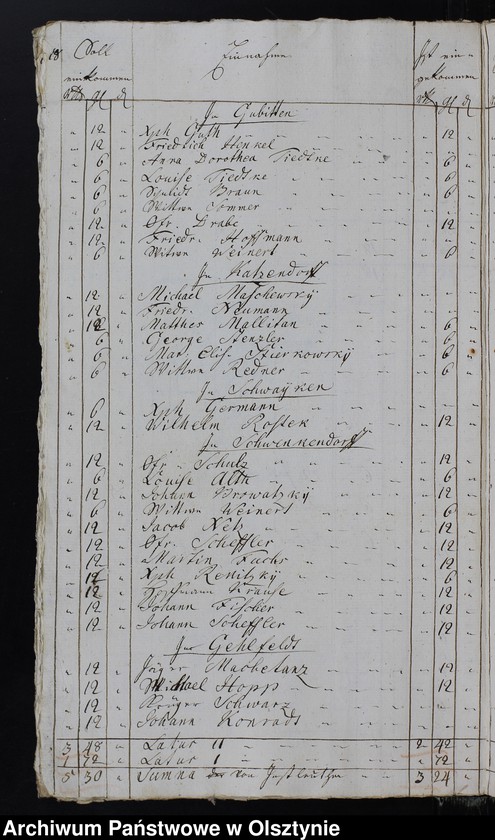 18 Soll Einnahme Ist ein-
einkommen gekommen
In Gubitten
" 12 " Xph Guth " 12
" 12 " Friedrich Henkel
" 6 " Anna Dorothea Tiedtke " 6
" 6 " Louise Tiedtke " 6
" 6 " Braun " 6
" 6 " Wittwe Sommer " 6
" 12 " Gfr. Drabe " 12
" 12 " Friedr. Hoffmann
" 6 " Wittwe Weinert " 6
In Katzendorff
" 12 " Michael Maschewsky
" 12 " Friedr. Neumann
" 12 " Matthes Mallitan " 6
" 6 " George Stenzler " 6
" 6 " Mar. Elis. Stierkowsky " 6
" 6 " Wittwe Redner " 6
In Schwayken
" 6 " Xph Germann
" 12 " Wilhelm Rostek " 12
In Schwenkendorff
" 12 " Gfr. Schulz " 12
" 6 " Louise Alth " 6
" 12 " Johann Browatzky " 12
" 6 " Wittwe Weinert " 6
" 12 " Jacob Netz " 12
" 12 " Gfr. Scheffler " 12
" 12 " Martin Fuchs " 12
" 12 " Xph Renitzky " 6
" 12 " Krause " 12
" 12 " Johann Fischer " 12
" 12 " Johann Scheffler " 12
In Gehlfeldt
" 12 " Jäger Macbetanz " 12
" 12 " Michael Hopp " 12
" 12 " Krüger Schwarz
" 12 " Johann Konradt
3 48 " Latus II 2 42
1 72 " Latus I " 72
5 30 " Summa von 3 24
Archiwum Państwowe w Olsztynie